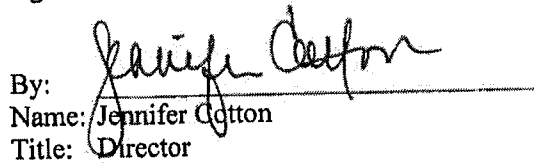 Jennifer Cotton
By:
Name: Jennifer Cotton
Title: Director